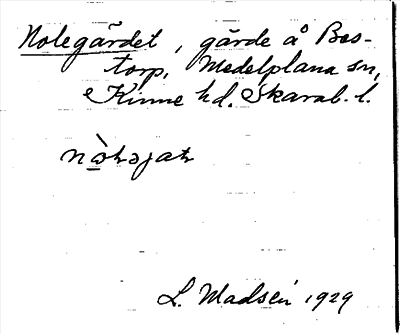 Nolegärdet, gärde å Bos-
torp, Medelplana sn,
Kinne hd. Skarab. l.
L. Madsén 1929